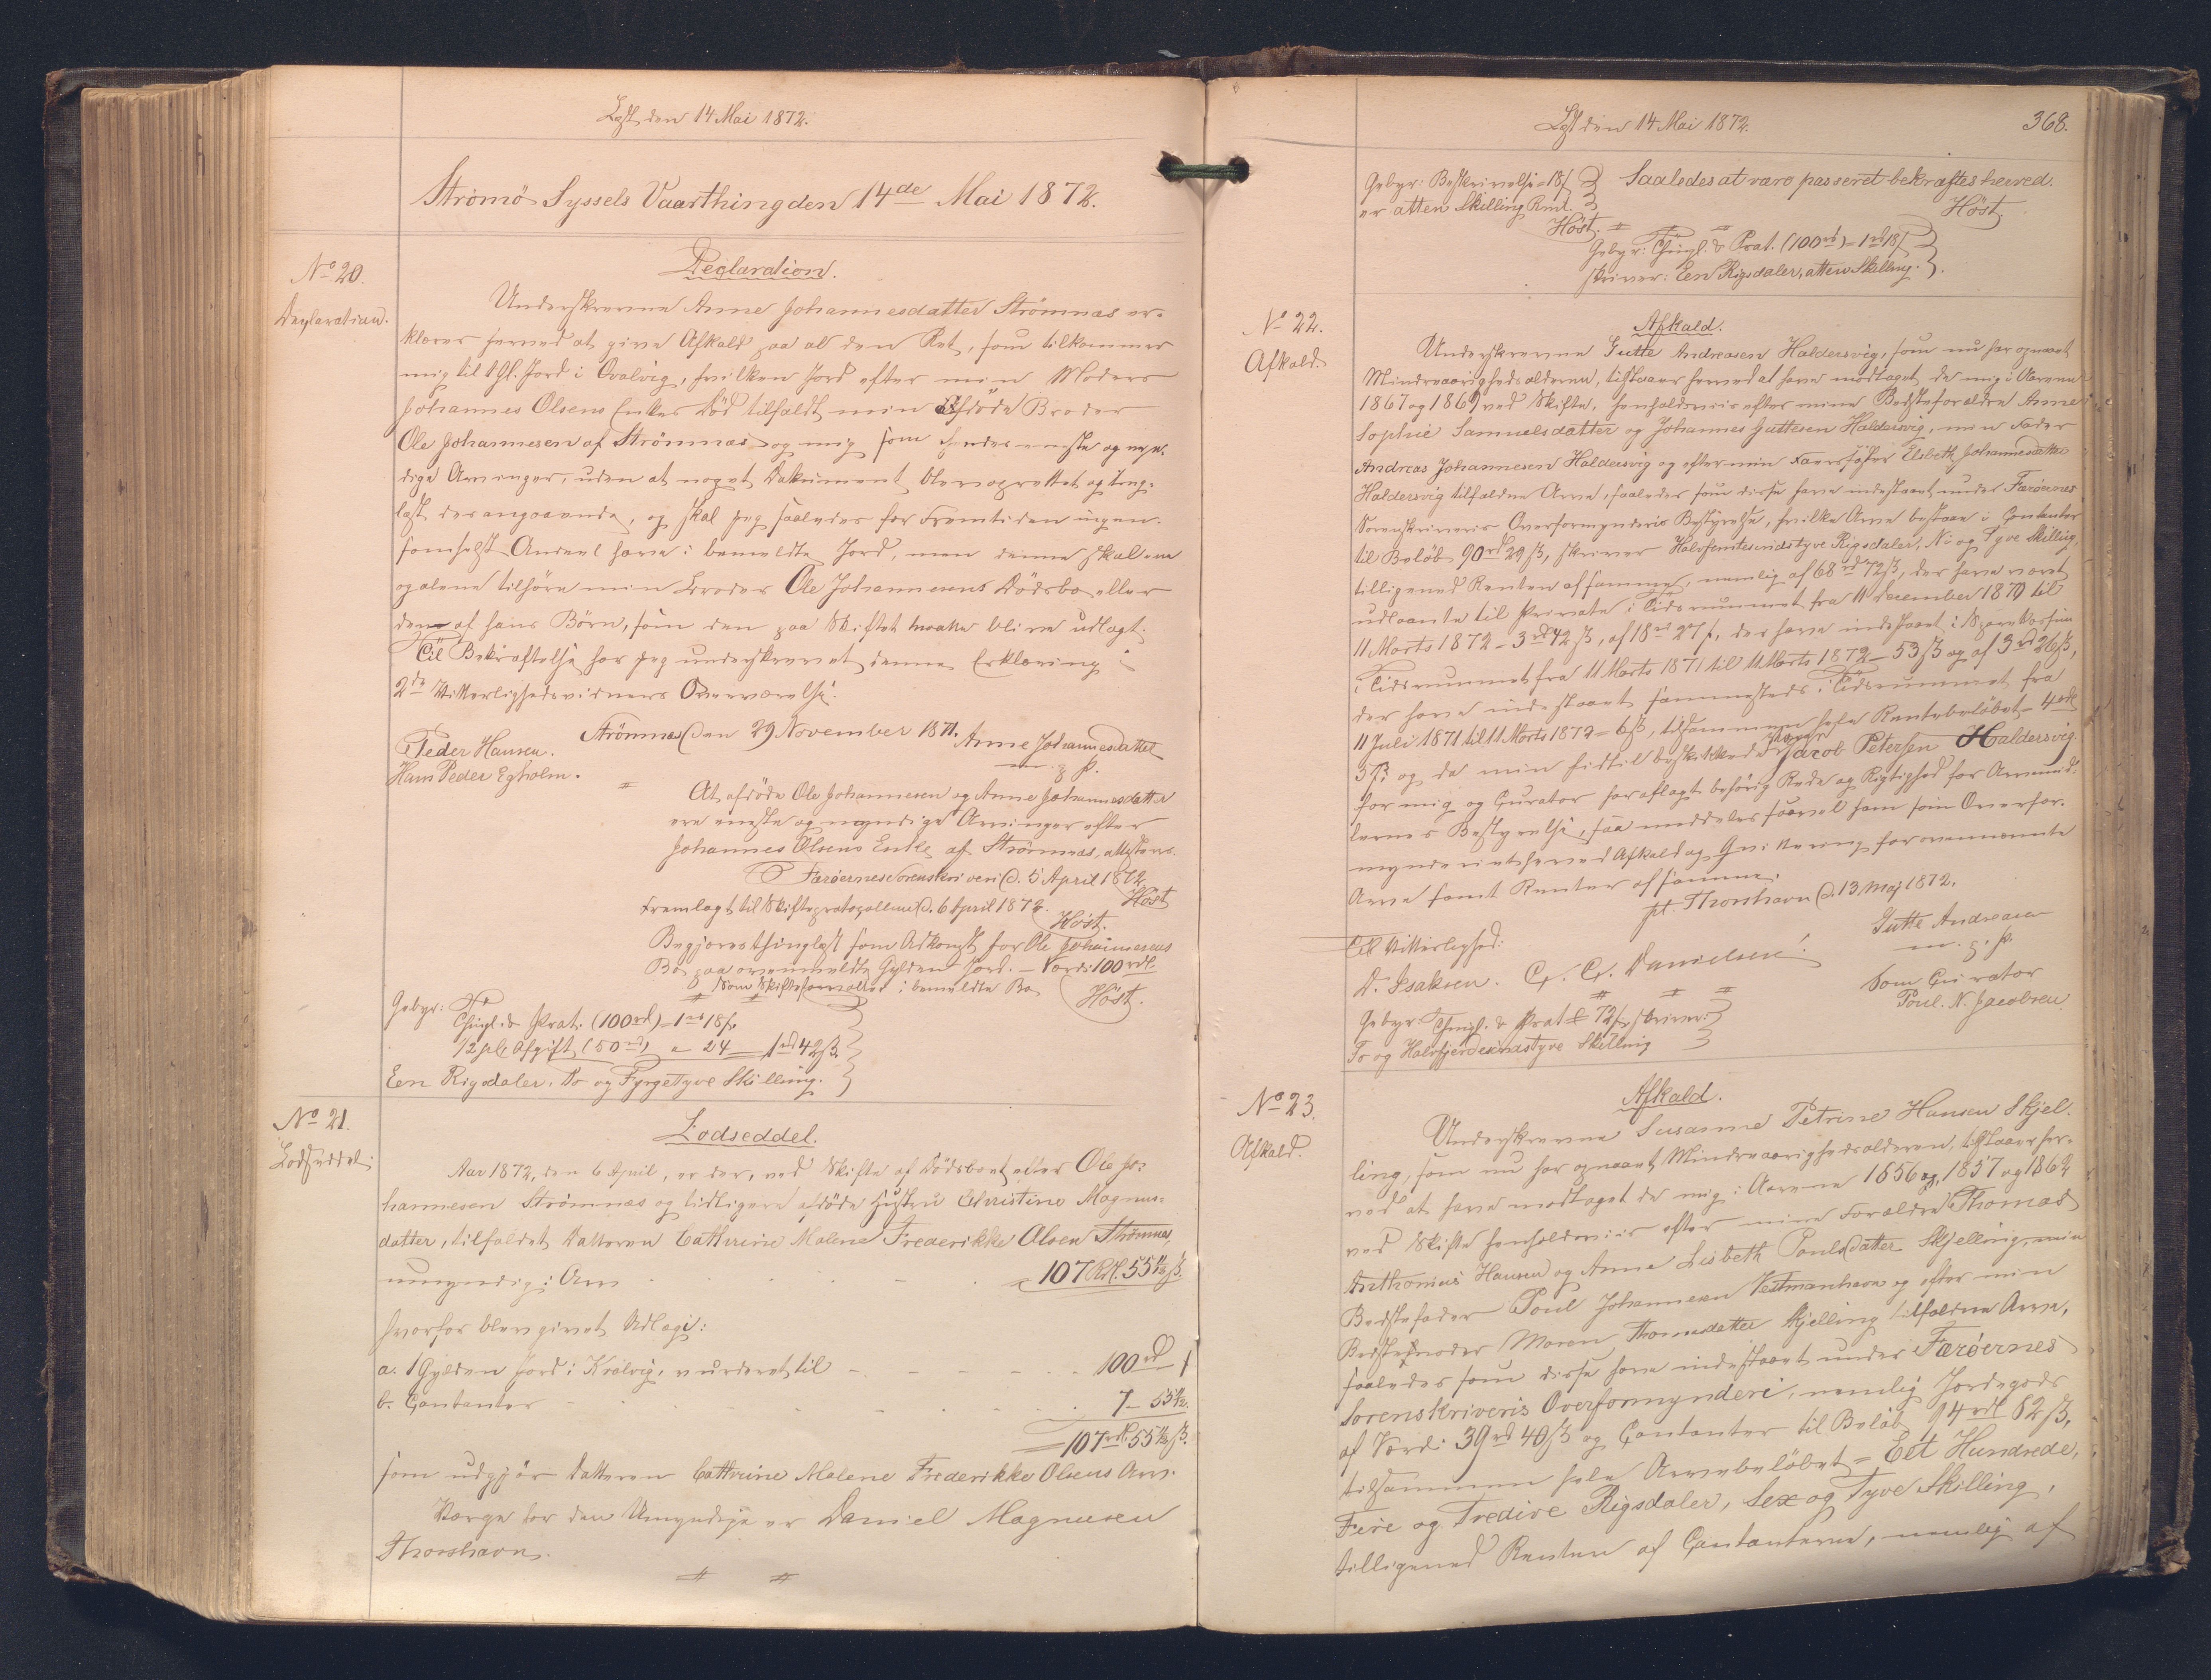 Lyst den 14 Mai 1872.
Strømø Syssels Vaarthing den 14de Mai 1872.
No 20.
Declaration.
Declaration.
Underskrevne Anne Johannesdatter Strömnæs er-
klærer herved at give Afkald paa al den Ret, som tilkommer
mig til 1 Gl. Jord i Qvalvig, hvilken Jord efter min Moders
Johannes Olsens Enkes Död tilfaldt min afdöde Broder
Ole Johannesen af Strömnæs og mig som hendes eneste og myn-
dige Arvinger, uden at noget Dokument blev oprettet og ting-
læst derangaaende, og skal jeg saaledes for Fremtiden ingen-
somhelst Andeel have i bemeldte Jord, men denne skal ene
og alene tilhøre min Broder Ole Johannesens Dödsbo eller
den af hans Börn, som den paa Skiftet maatte blive udlagt.
Til Bekræftelse har jeg underskrevet denne Erklæring i
2de Vitterlighedsvidners Overværelse.
Strömnæs den 29 November 1871.
Anne Johannesdatter
m. p. P.
Peder Hansen.
Hans Peder Egholm.
At afdöde Ole Johannesen og Anne Johannesdatter
ere eneste og myndige Arvinger efter
Johannes Olsens Enke af Strömnæs, attesteres.
Færöernes Sorenskriveri d. 5 April 1872
Höst
Fremlagt til Skifteprotocollen d. 6 April 1872.
Höst.
Begjæres thinglæst som Adkomst for Ole Johannesens
Bo paa ovenmeldte Gylden Jord. - Værdi 100 rdl.
Som Skifteforvalter i bemeldte Bo
Höst.
Gebyr:
Thingl. & Prot. (100 rd) = 1 rd 18 ß
1/2 pCt Afgift (50 rd) " 24 = 1 rd 42 ß.
Een Rigsdaler, To og Fyrgetyve Skilling.
No 21.
Lodseddel.
Lodseddel.
Aar 1872, den 6 April, er der, ved Skifte af Dödsboet efter Ole Jo-
hannesen Strömnæs og tidligere afdöde Hustru Christine Magnus-
datter, tilfaldet Datteren Cathrine Malene Frederikke Olsen Strömnæs,
umyndig i Arv 107 Rdl. 55 1/2 ß.
hvorfor blev givet Udlæg i:
a. 1 Gylden Jord i Kvalvig, vurderet til 100 rd
b. Contanter 7 - 55 1/2.
107 rdl. 55 1/2 ß.
som udgjör Datteren Cathrine Malene Frederikke Olsens Arv.
Værge for den Umyndige er Daniel Magnusen
Thorshavn.
Lyst den 14 Mai 1872.
368.
Gebyr: Beskrivelse = 18 ß
er atten Skilling Rmt.
Höst.
Saaledes at være passeret bekræftes herved.
Höst.
Gebyr: Thingl. & Prot. (100 rd) = 1 rd 18 ß
skriver: Een Rigsdaler, atten Skilling.
No 22.
Afkald.
Afkald.
Underskrevne Gutte Andreasen Haldersvig, som nu har opnaaet
Mindreaarighedsalderen, tilstaaer herved at have modtaget de mig i Aarene
1867 og 1869 ved Skifte, henholdsviis efter mine Bedsteforældre Anne
Sophie Samuelsdatter og Johannes Guttesen Haldersvig, min Fader
Andreas Johannesen Haldersvig og efter min Faersöster Elsbeth Johannesdatter
Haldersvig tilfaldne Arve, saaledes som disse have indestaaet under Færöernes
Sorenskriveris Overformynderis Bestyrelse, hvilke Arve bestaae i Contanter
til Beløb 90 rd 29 ß, skriver Halvfemtesindstyve Rigsdaler, Ni og Tyve Skilling,
tilligemed Renten af samme, nemlig af 68 rd 72 ß, der have været
udlaante til Private i Tidsrummet fra 11 December 1870 til
11 Marts 1872 = 3 rd 42 ß, af 18 rd 27 ß, der have indestaaet i Sparekassen
i Tidsrummet fra 11 Marts 1871 til 11 Marts 1872 = 53 ß og af 3 rd 26 ß,
der have indestaaet sammesteds i Tidsrummet fra
11 Juli 1871 til 11 Marts 1872 = 6 ß, tilsammen hele Rentebeløbet = 4 rdl
3 ß; og da min hidtil beskikkede Værge Jacob Petersen Haldersvig
for mig og Curator har aflagt behörig Rede og Rigtighed for Arvemid-
lernes Bestyrelse, saa meddeles saavel ham som Overfor-
mynderiet herved Afkald og Qvittering for ovennævnte
Arve samt Renter af samme.
pt. Thorshavn d. 13 Maj 1872.
Gutte Andreasen
m. p. P.
Til Vitterlighed:
D. Isaksen. C. C. Danielsen.
Som Curator
Poul. N. Jacobsen
Gebyr: Thingl. & Prot = 72 ß skriver:
To og Halvfjerdesindstyve Skilling
No 23.
Afkald.
Afkald.
Underskrevne Susanne Petrine Hansen Skjel-
ling, som nu har opnaaet Mindreaarighedsalderen, tilstaaer her-
ved at have modtaget de mig i Aarene 1856 og 1857 og 1862
ved Skifte henholdsviis efter mine Forældre Thomas
Anthonius Hansen og Anne Lisbeth Poulsdatter Skjelling, min
Bedstefader Poul Johannesen Vestmanhavn og efter min
Bedstemoder Maren Thomsdatter Skjelling tilfaldne Arve,
saaledes som disse have indestaaet under Færöernes
Sorenskriveris Overformynderi, nemlig Jordegods
af Værdi 39 rd 40 ß og Contanter til Beløb 94 rdl 82 ß,
tilsammen hele Arvebeløbet = Eet Hundrede,
Fire og Tredive Rigsdaler, Sex og Tyve Skilling,
tilligemed Renten af Contanterne, nemlig af